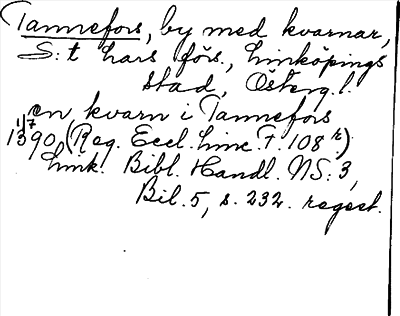 Tannefors, by med kvarnar,
S:t Lars förs., Linköpings
stad, Österg.l.
en kvarn i Tannefors
1/7
1390 (Reg. Eccl. Linc. F. 108 r)
Link. Bibl. Handl. NS: 3,
Bil. 5, s. 232. regest.